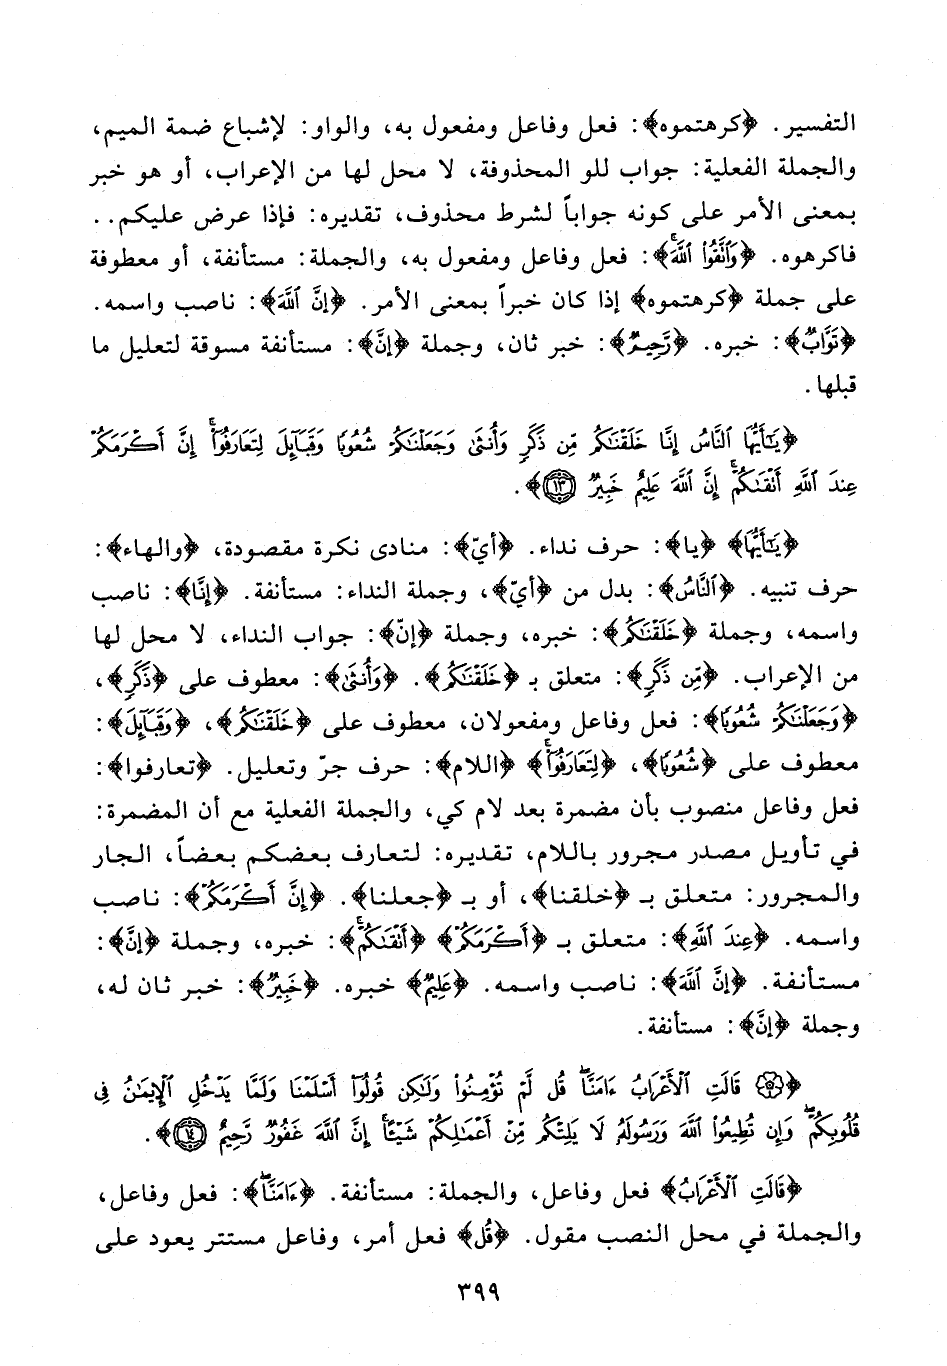 التفسير. ﴿كرهتموه﴾: فعل وفاعل ومفعول به، والواو: لإشباع ضمة الميم،
والجملة الفعلية: جواب للو المحذوفة، لا محل لها من الإعراب، أو هو خبر
بمعنى الأمر على كونه جواباً لشرط محذوف، تقديره: فإذا عرض عليكم..
فاكرهوه. ﴿وَٱتَّقُوا۟ ٱللَّهَ﴾: فعل وفاعل ومفعول به، والجملة: مستأنفة، أو معطوفة
على جملة ﴿كرهتموه﴾ إذا كان خبراً بمعنى الأمر. ﴿إِنَّ ٱللَّهَ﴾: ناصب واسمه.
﴿تَوَّابٌ﴾: خبره. ﴿رَّحِيمٌ﴾: خبر ثان، وجملة ﴿إنَّ﴾: مستأنفة مسوقة لتعليل ما
قبلها.
﴿يَٰٓأَيُّهَا ٱلنَّاسُ إِنَّا خَلَقْنَٰكُم مِّن ذَكَرٍ وَأُنثَىٰ وَجَعَلْنَٰكُمْ شُعُوبًا وَقَبَآئِلَ لِتَعَارَفُوٓا۟ ۚ إِنَّ أَكْرَمَكُمْ
عِندَ ٱللَّهِ أَتْقَىٰكُمْ ۚ إِنَّ ٱللَّهَ عَلِيمٌ خَبِيرٌ ١٣﴾.
﴿يَٰٓأَيُّهَا﴾ ﴿يا﴾: حرف نداء. ﴿أيّ﴾: منادى نكرة مقصودة، ﴿والهاء﴾:
حرف تنبيه. ﴿ٱلنَّاسُ﴾: بدل من ﴿أيّ﴾، وجملة النداء: مستأنفة. ﴿إِنَّا﴾: ناصب
واسمه، وجملة ﴿خَلَقْنَٰكُم﴾: خبره، وجملة ﴿إنّ﴾: جواب النداء، لا محل لها
من الإعراب. ﴿مِّن ذَكَرٍ﴾: متعلق بـ ﴿خَلَقْنَٰكُم﴾. ﴿وَأُنثَىٰ﴾: معطوف على ﴿ذَكَرٍ﴾،
﴿وَجَعَلْنَٰكُمْ شُعُوبًا﴾: فعل وفاعل ومفعولان، معطوف على ﴿خَلَقْنَٰكُم﴾، ﴿وَقَبَآئِلَ﴾:
معطوف على ﴿شُعُوبًا﴾، ﴿لِتَعَارَفُوٓا۟ ۚ﴾ ﴿اللام﴾: حرف جرّ وتعليل. ﴿تعارفوا﴾:
فعل وفاعل منصوب بأن مضمرة بعد لام كي، والجملة الفعلية مع أن المضمرة:
في تأويل مصدر مجرور باللام، تقديره: لتعارف بعضكم بعضاً، الجار
والمجرور: متعلق بـ ﴿خلقنا﴾، أو بـ ﴿جعلنا﴾. ﴿إِنَّ أَكْرَمَكُمْ﴾: ناصب
واسمه. ﴿عِندَ ٱللَّهِ﴾: متعلق بـ ﴿أَكْرَمَكُمْ﴾ ﴿أَتْقَىٰكُمْ ۚ﴾: خبره، وجملة ﴿إنَّ﴾:
مستأنفة. ﴿إِنَّ ٱللَّهَ﴾: ناصب واسمه. ﴿عَلِيمٌ﴾ خبره. ﴿خَبِيرٌ﴾: خبر ثان له،
وجملة ﴿إنَّ﴾: مستأنفة.
﴿۞ قَالَتِ ٱلْأَعْرَابُ ءَامَنَّا ۖ قُل لَّمْ تُؤْمِنُوا۟ وَلَٰكِن قُولُوٓا۟ أَسْلَمْنَا وَلَمَّا يَدْخُلِ ٱلْإِيمَٰنُ فِى
قُلُوبِكُمْ ۖ وَإِن تُطِيعُوا۟ ٱللَّهَ وَرَسُولَهُۥ لَا يَلِتْكُم مِّنْ أَعْمَٰلِكُمْ شَيْـًٔا ۚ إِنَّ ٱللَّهَ غَفُورٌ رَّحِيمٌ ١٤﴾.
﴿قَالَتِ ٱلْأَعْرَابُ﴾ فعل وفاعل، والجملة: مستأنفة. ﴿ءَامَنَّا ۖ﴾: فعل وفاعل،
والجملة في محل النصب مقول. ﴿قُل﴾ فعل أمر، وفاعل مستتر يعود على
٣٩٩